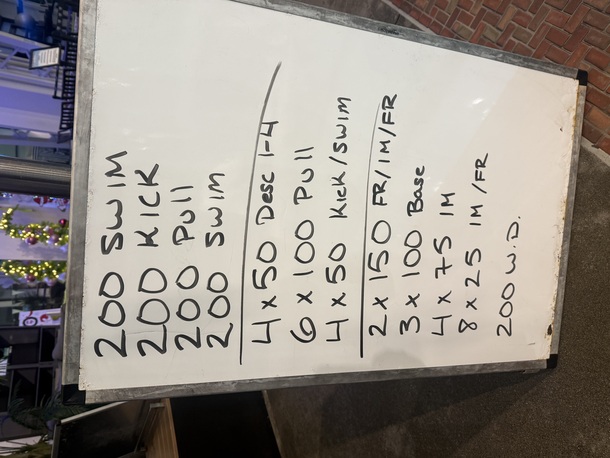 200 SWIM
200 KICK
200 Pull
200 SWIM
4 x 50 Desc 1-4
6 x 100 Pull
4 x 50 Kick/SWIM
2 x 150 FR/IM/FR
3 x 100 Base
4 x 75 IM
8 x 25 IM/FR
200 W.D.